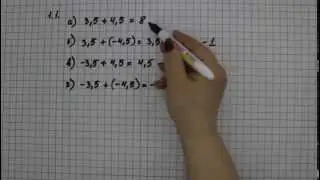 1.1. а) 3,5 + 4,5 = 8
б) 3,5 + (-4,5) = 3,5 - 1
в) -3,5 + 4,5 = 4,5
г) -3,5 + (-4,5) = -